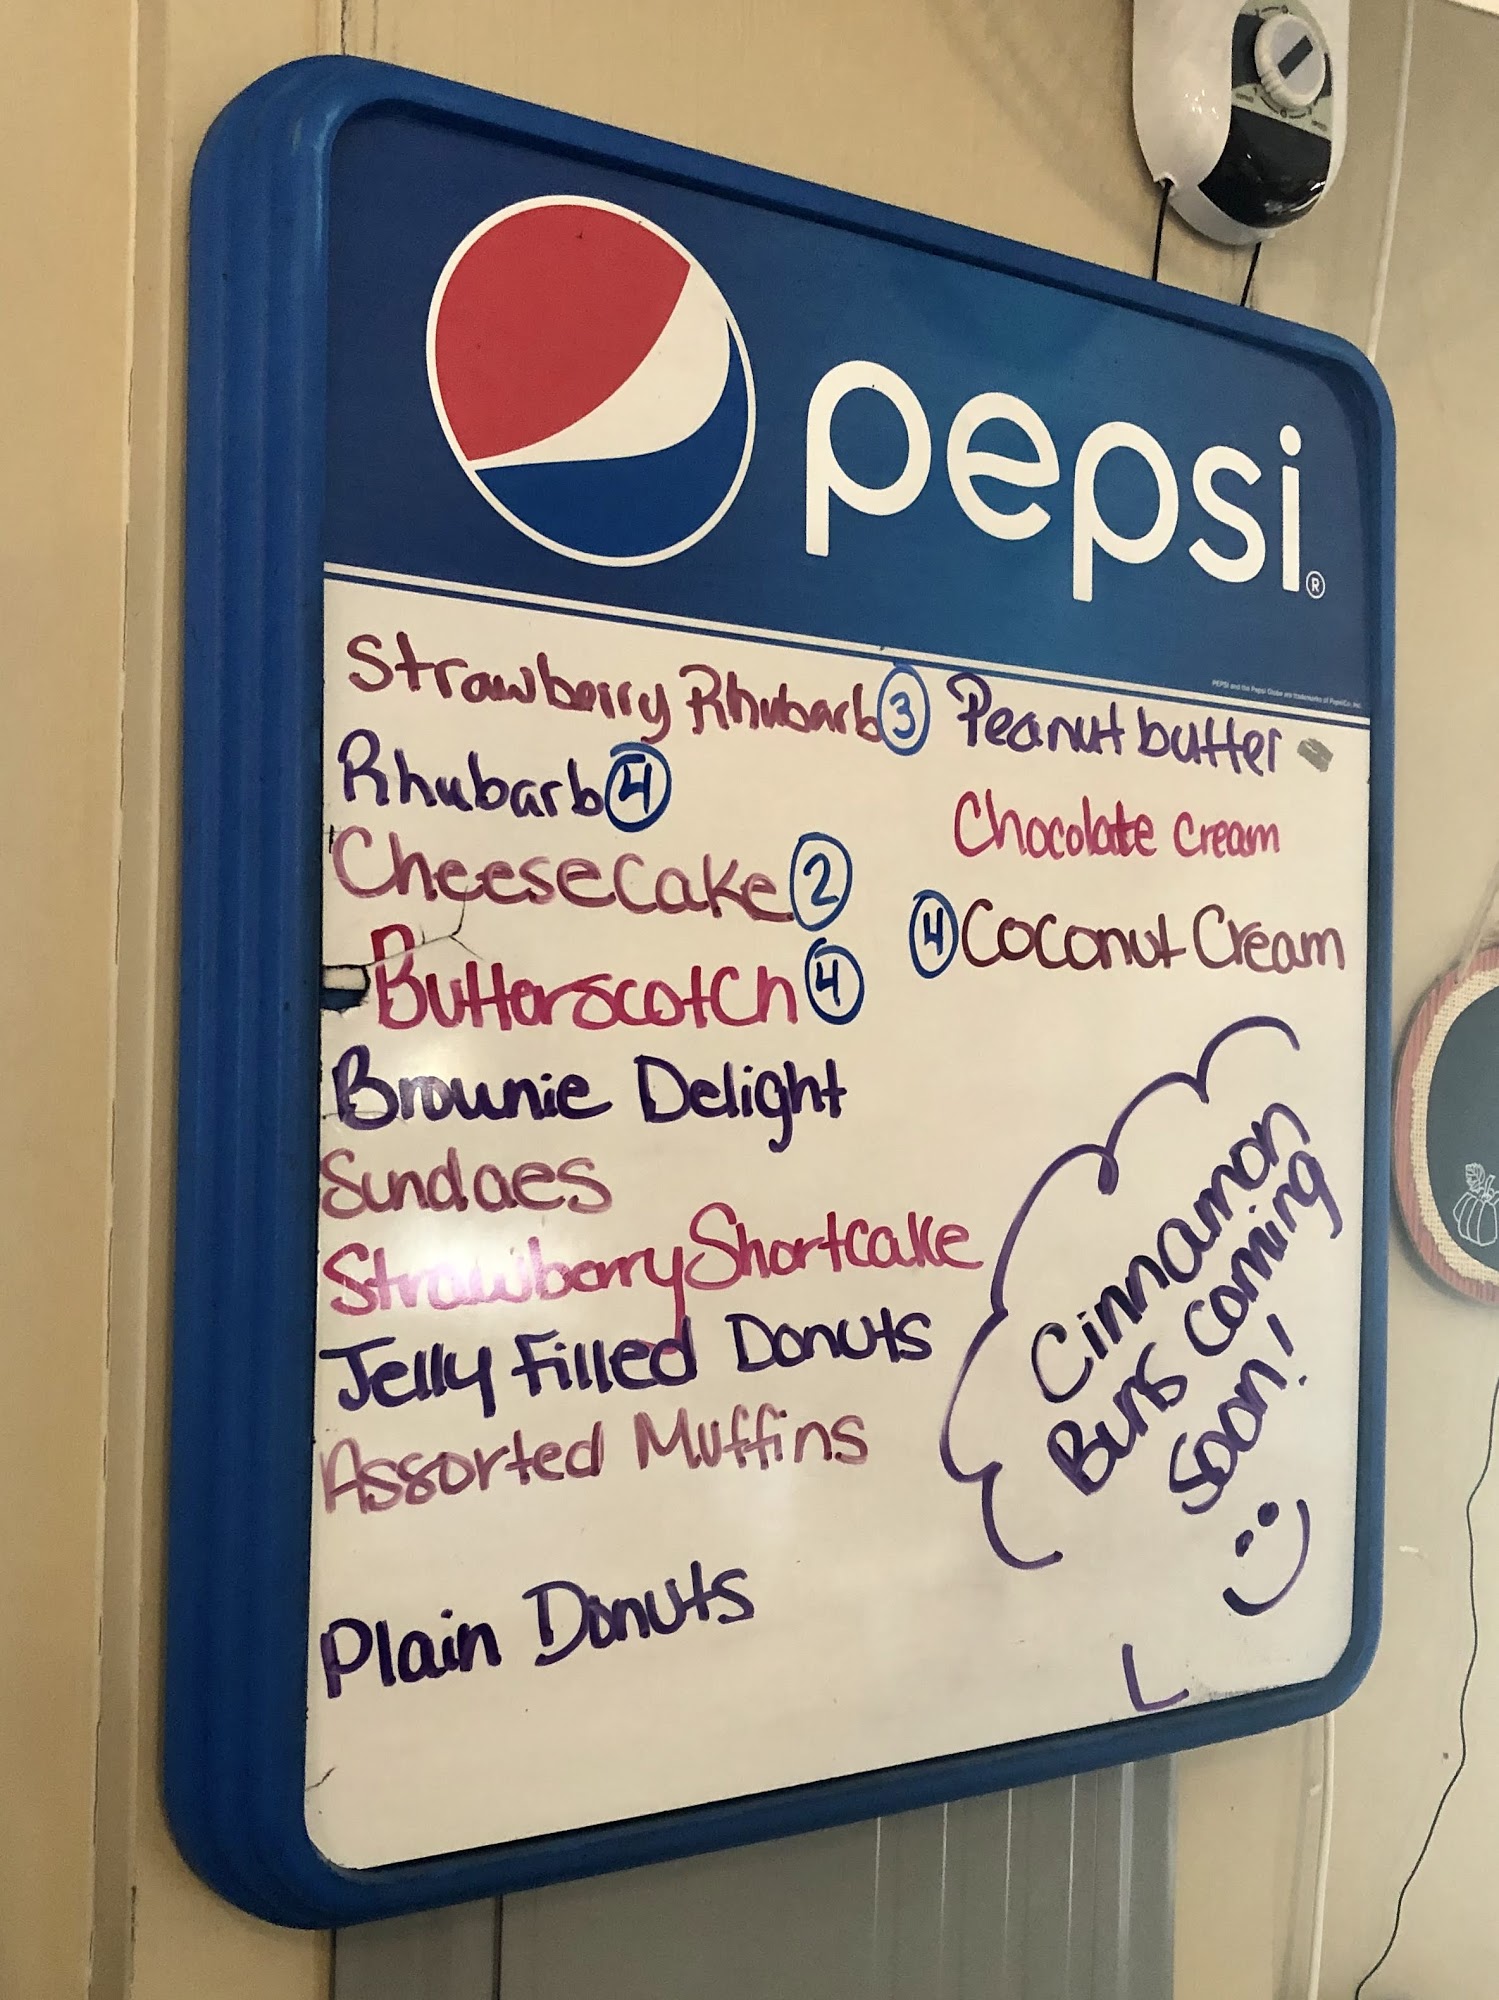 pepsi®
PEPSI and the Pepsi Globe are trademarks of PepsiCo, Inc.
Strawberry Rhubarb 3
Rhubarb 4
Cheesecake 2
Butterscotch 4
Brownie Delight
Sundaes
Strawberry Shortcake
Jelly Filled Donuts
Assorted Muffins
Plain Donuts
Peanut butter
Chocolate cream
4 Coconut Cream
Cinnamon
Buns coming
soon!